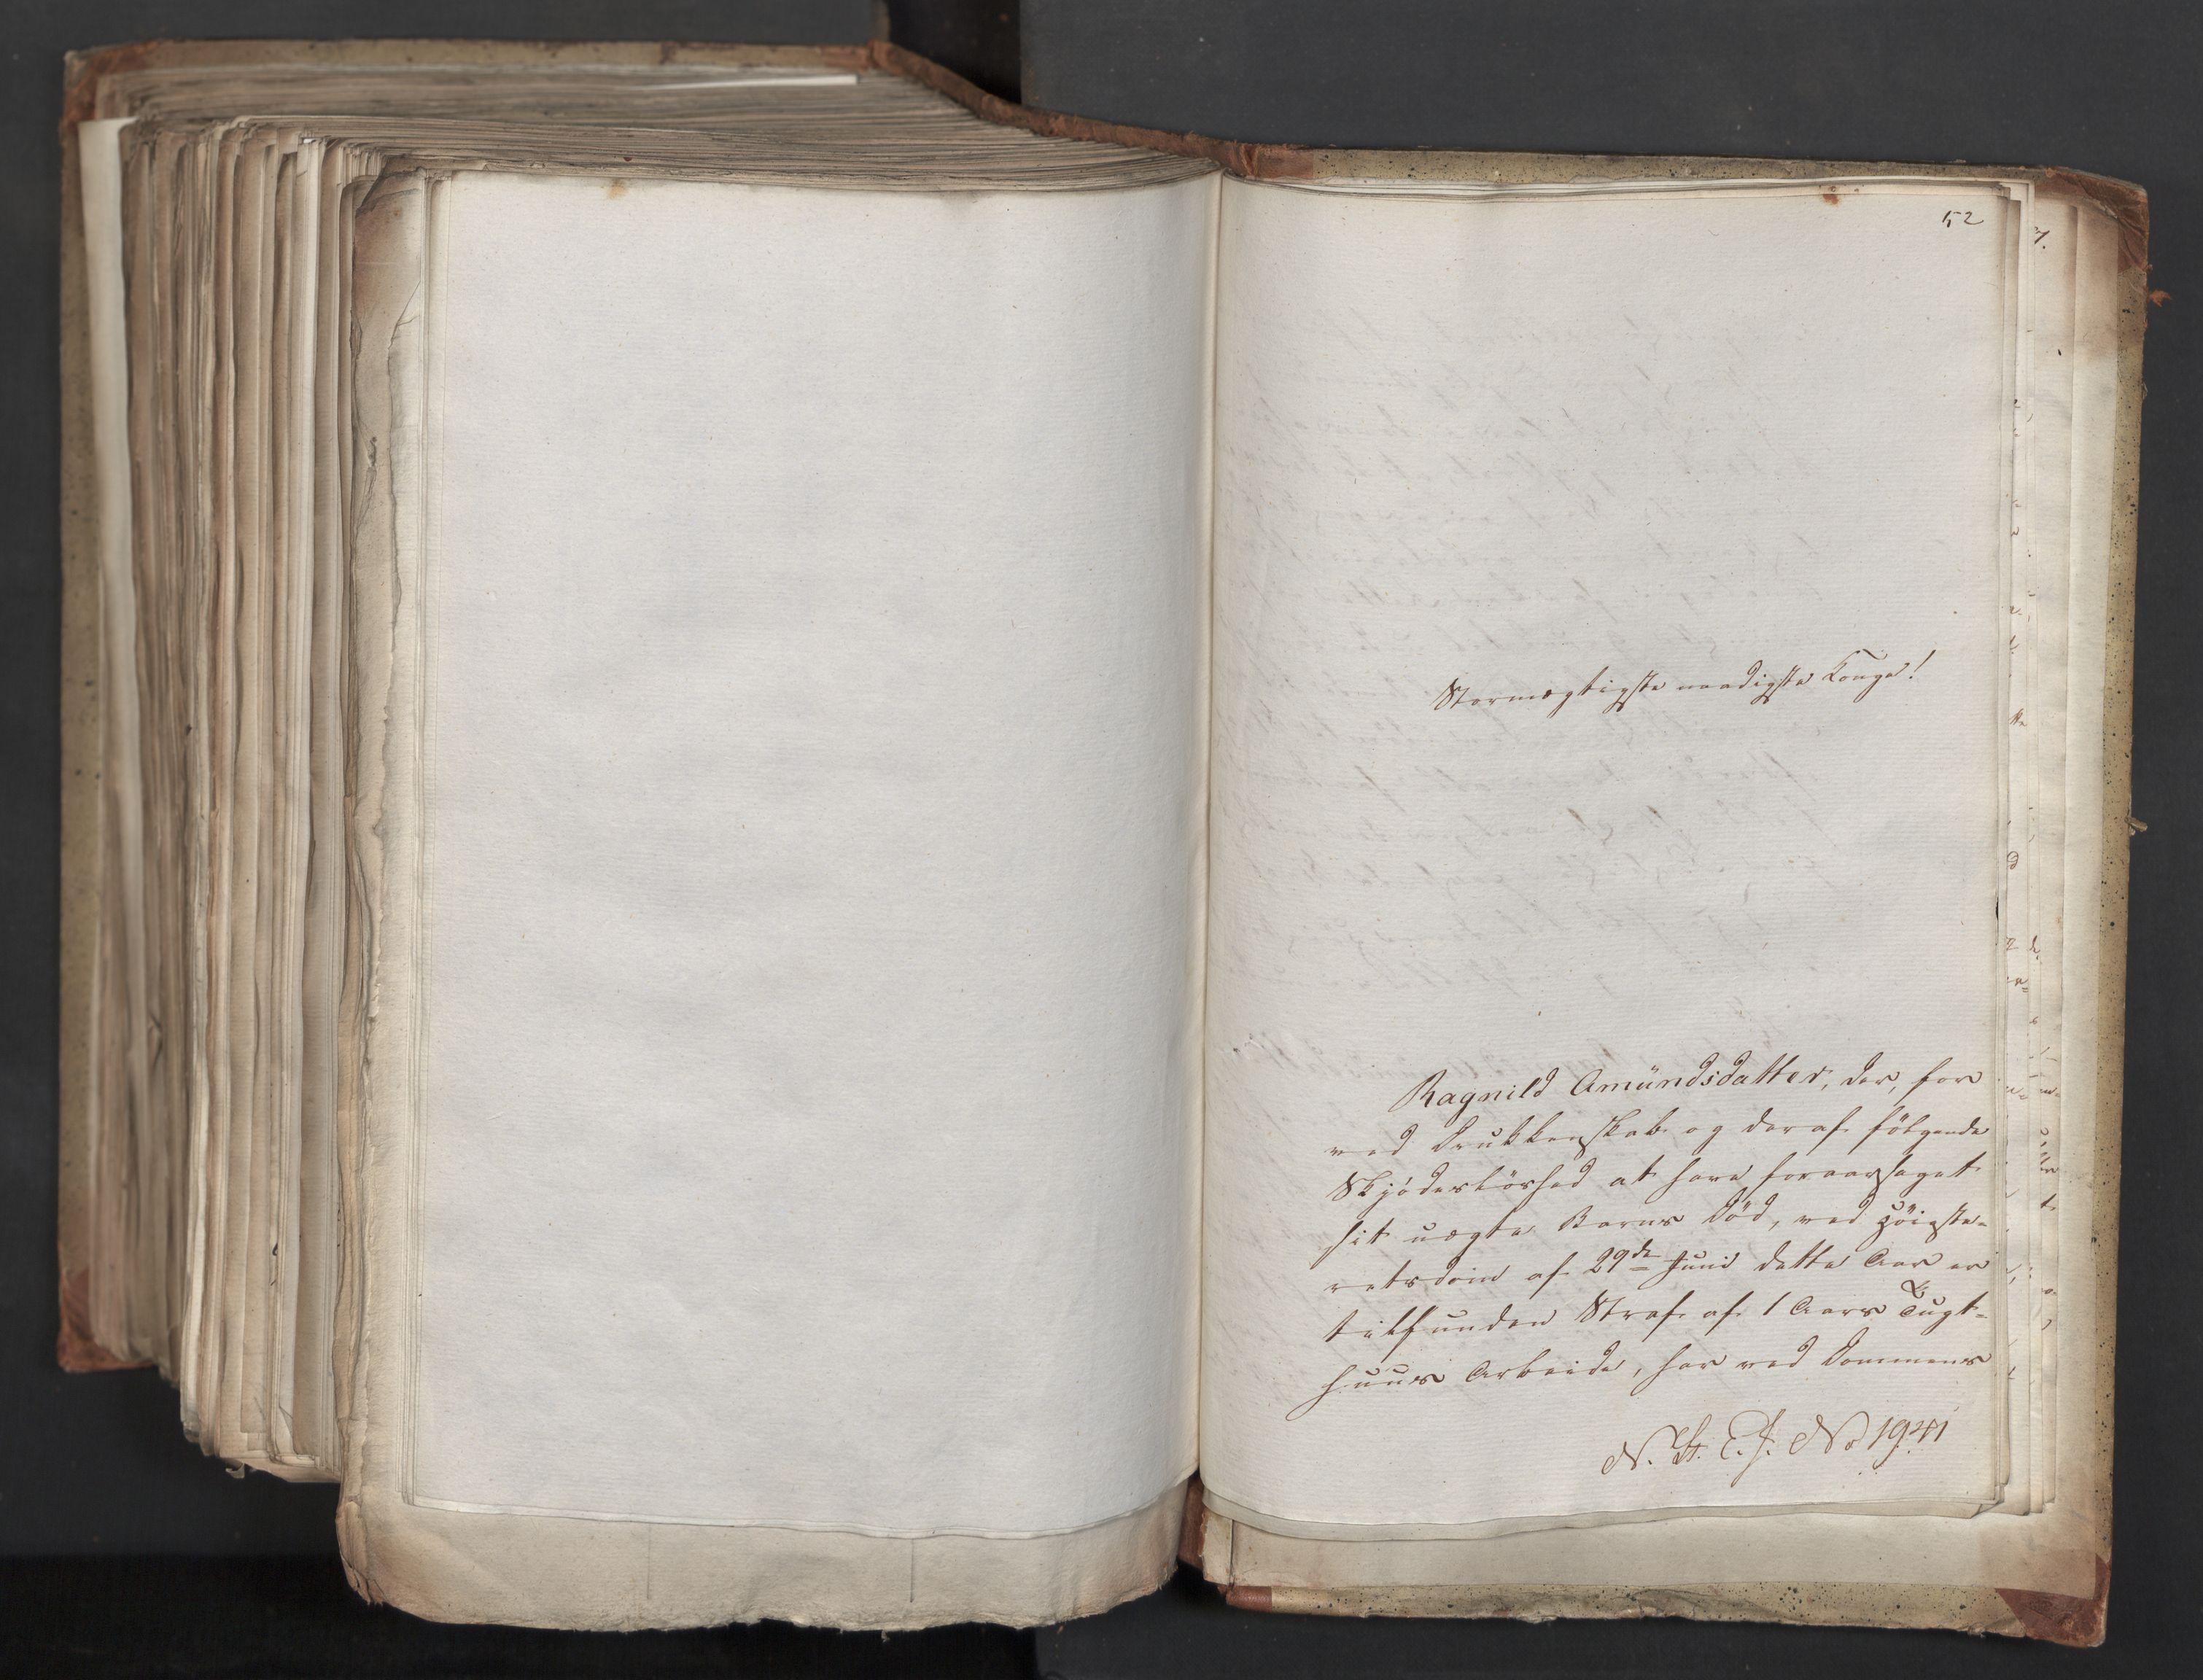 52
Stormægtigste naadigste Konge!
Ragnild Amündsdatter, der, for
ved Drukkenskab og deraf fölgende
Skjödeslöshed at have foraarsaget
sit uægte Barns Död, ved Höieste-
retsdom af 29de Juni dette Aar er
tilfunden Straf af 1 Aars Tugt-
huus Arbeide, har ved Dommens
No 1941